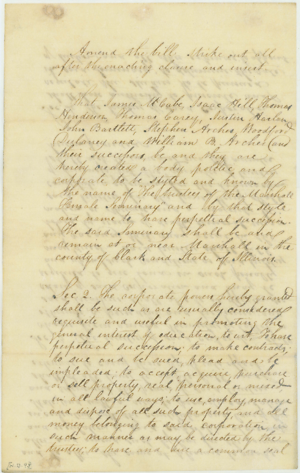 Amend the bill. Strike out all
after the enacting clause and insert.
That James McCabe, Isaac Hill, Thomas
Henderson, Thomas Carey, Justin Harlan,
John Bartlett, Stephen Archer, Woodford
Dulaney and William B. Archer and
their successors be, and they are
hereby created a body politic and
corporate to be styled and known by
the name of "The trustees of the Marshall
Female Seminary" and by that style
and name to have perpetual succession
The said Seminary shall be and
remain at or near Marshall in the
county of Clark and State of Illinois.
Sec 2. The corporate powers hereby granted
shall be such as are usually considered
requisite and useful in promoting the
general interest of education, to wit: To have
perpetual succession, to make contracts,
to sue and be sued, plead and be
impleaded, to accept, acquire, purchase
or sell property, real, personal or mixed
in all lawful ways; to use, employ, manage
and dispose of all such property, and all
money belonging to said corporation in
such manner as may be directed by the
trustees; to have and use a common seal